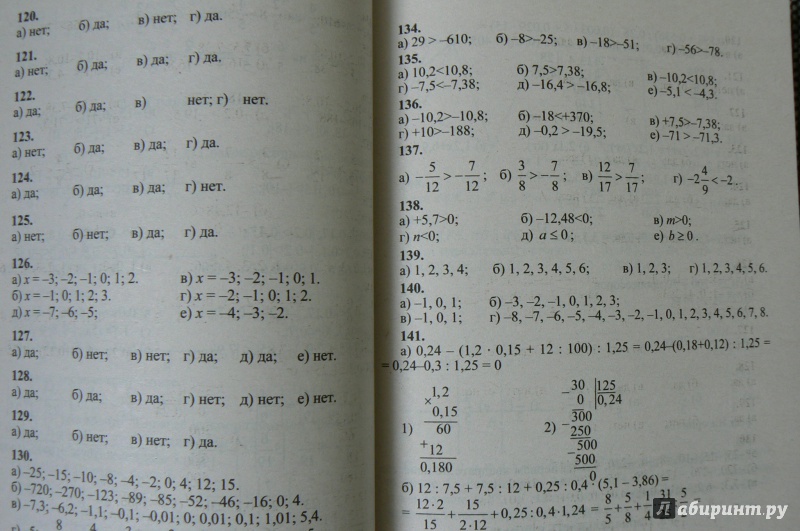 120.
а) нет; б) да; в) нет; г) да.
121.
а) нет; б) да; в) да; г) да.
122.
а) да; б) да; в) нет; г) нет.
123.
а) нет; б) да; в) да; г) да.
124.
а) да; б) да; в) да; г) нет.
125.
а) нет; б) нет; в) да; г) да.
126.
а) x = –3; –2; –1; 0; 1; 2. в) x = –3; –2; –1; 0; 1.
б) x = –1; 0; 1; 2; 3. г) x = –2; –1; 0; 1; 2.
д) x = –7; –6; –5; е) x = –4; –3; –2.
127.
а) да; б) нет; в) нет; г) да; д) да; е) нет.
128.
а) да; б) да; в) да; г) нет; д) нет; е) нет.
129.
а) да; б) нет; в) нет; г) да.
130.
а) –25; –15; –10; –8; –4; –2; 0; 4; 12; 15.
б) –720; –270; –123; –89; –85; –52; –46; –16; 0; 4.
в) –7,3; –6,2; –1,1; –0,1; –0,01; 0; 0,01; 0,1; 1,01; 5,4.
134.
а) 29 > –610; б) –8> –25; в) –18> –51; г) –56> –78.
135.
а) 10,2<10,8; б) 7,5>7,38; в) –10,2<10,8;
г) –7,5<–7,38; д) –16,4 > –16,8; е) –5,1 < –4,3.
136.
а) –10,2>–10,8; б) –18<+370; в) +7,5>–7,38;
г) +10>–188; д) –0,2 > –19,5; е) –71 > –71,3.
137.
а) –5/12 > –7/12; б) 3/8 > –7/8; в) 12/17 > 7/17; г) –2 4/9 < –2.
138.
а) +5,7>0; б) –12,48<0; в) m>0;
г) n<0; д) a ≤ 0; е) b ≥ 0.
139.
а) 1, 2, 3, 4; б) 1, 2, 3, 4, 5, 6; в) 1, 2, 3; г) 1, 2, 3, 4, 5, 6.
140.
а) –1, 0, 1; б) –3, –2, –1, 0, 1, 2, 3;
в) –1, 0, 1; г) –8, –7, –6, –5, –4, –3, –2, –1, 0, 1, 2, 3, 4, 5, 6, 7, 8.
141.
а) 0,24 – (1,2 · 0,15 + 12 : 100) : 1,25 = 0,24–(0,18+0,12) : 1,25 =
= 0,24–0,3 : 1,25 = 0
1)
1,2
× 0,15
60
+ 12
0,180
2)
–30 125
0 0,24
300
– 250
–500
500
0
б) 12 : 7,5 + 7,5 : 12 + 0,25 : 0,4 · (5,1 – 3,86) =
= 12·2/15 + 15/2·12 + 0,25 : 0,4 · 1,24 = 8/5 + 5/8 + 1/4
Лабиринт.ру